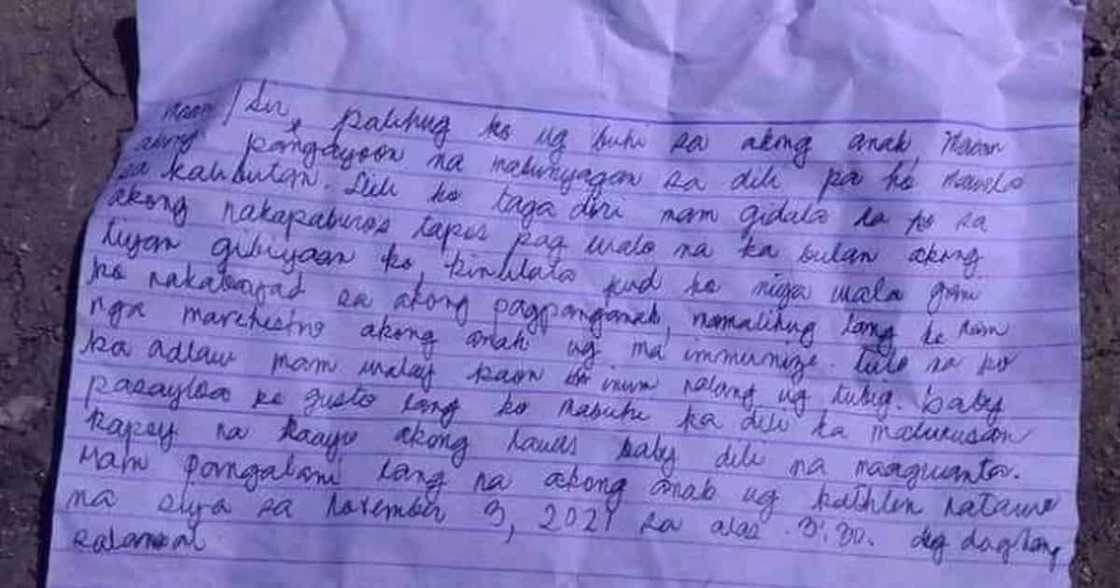 Maam / Sir, palihug ko ug buhi sa akong anak, Maam
akong pangayoon na mabunyagan sa dili pa ko mawala
sa kalibutan. Dili ko taga diri mam gidala ra ko sa
akong nakapaburos tapos pag walo na ka bulan akong
tiyan gibiyaan ko, kinulata pud ko niya wala gani
ko nakabayad sa akong pagpanganak, namalihug lang ko mam
nga marehestro akong anak ug ma immunize. tulo na ko
ka adlaw mam walay kaon inum nalang ug tubig. baby
pasayloa ko gusto lang ko mabuhi ka dili ka madukusan
kapoy na kaayo akong lawas baby dili na maagwanta.
Mam pangalani lang na akong anak ug kathlen natawo
na siya sa November 3, 2021 sa alas 3:30. daghang
salamat